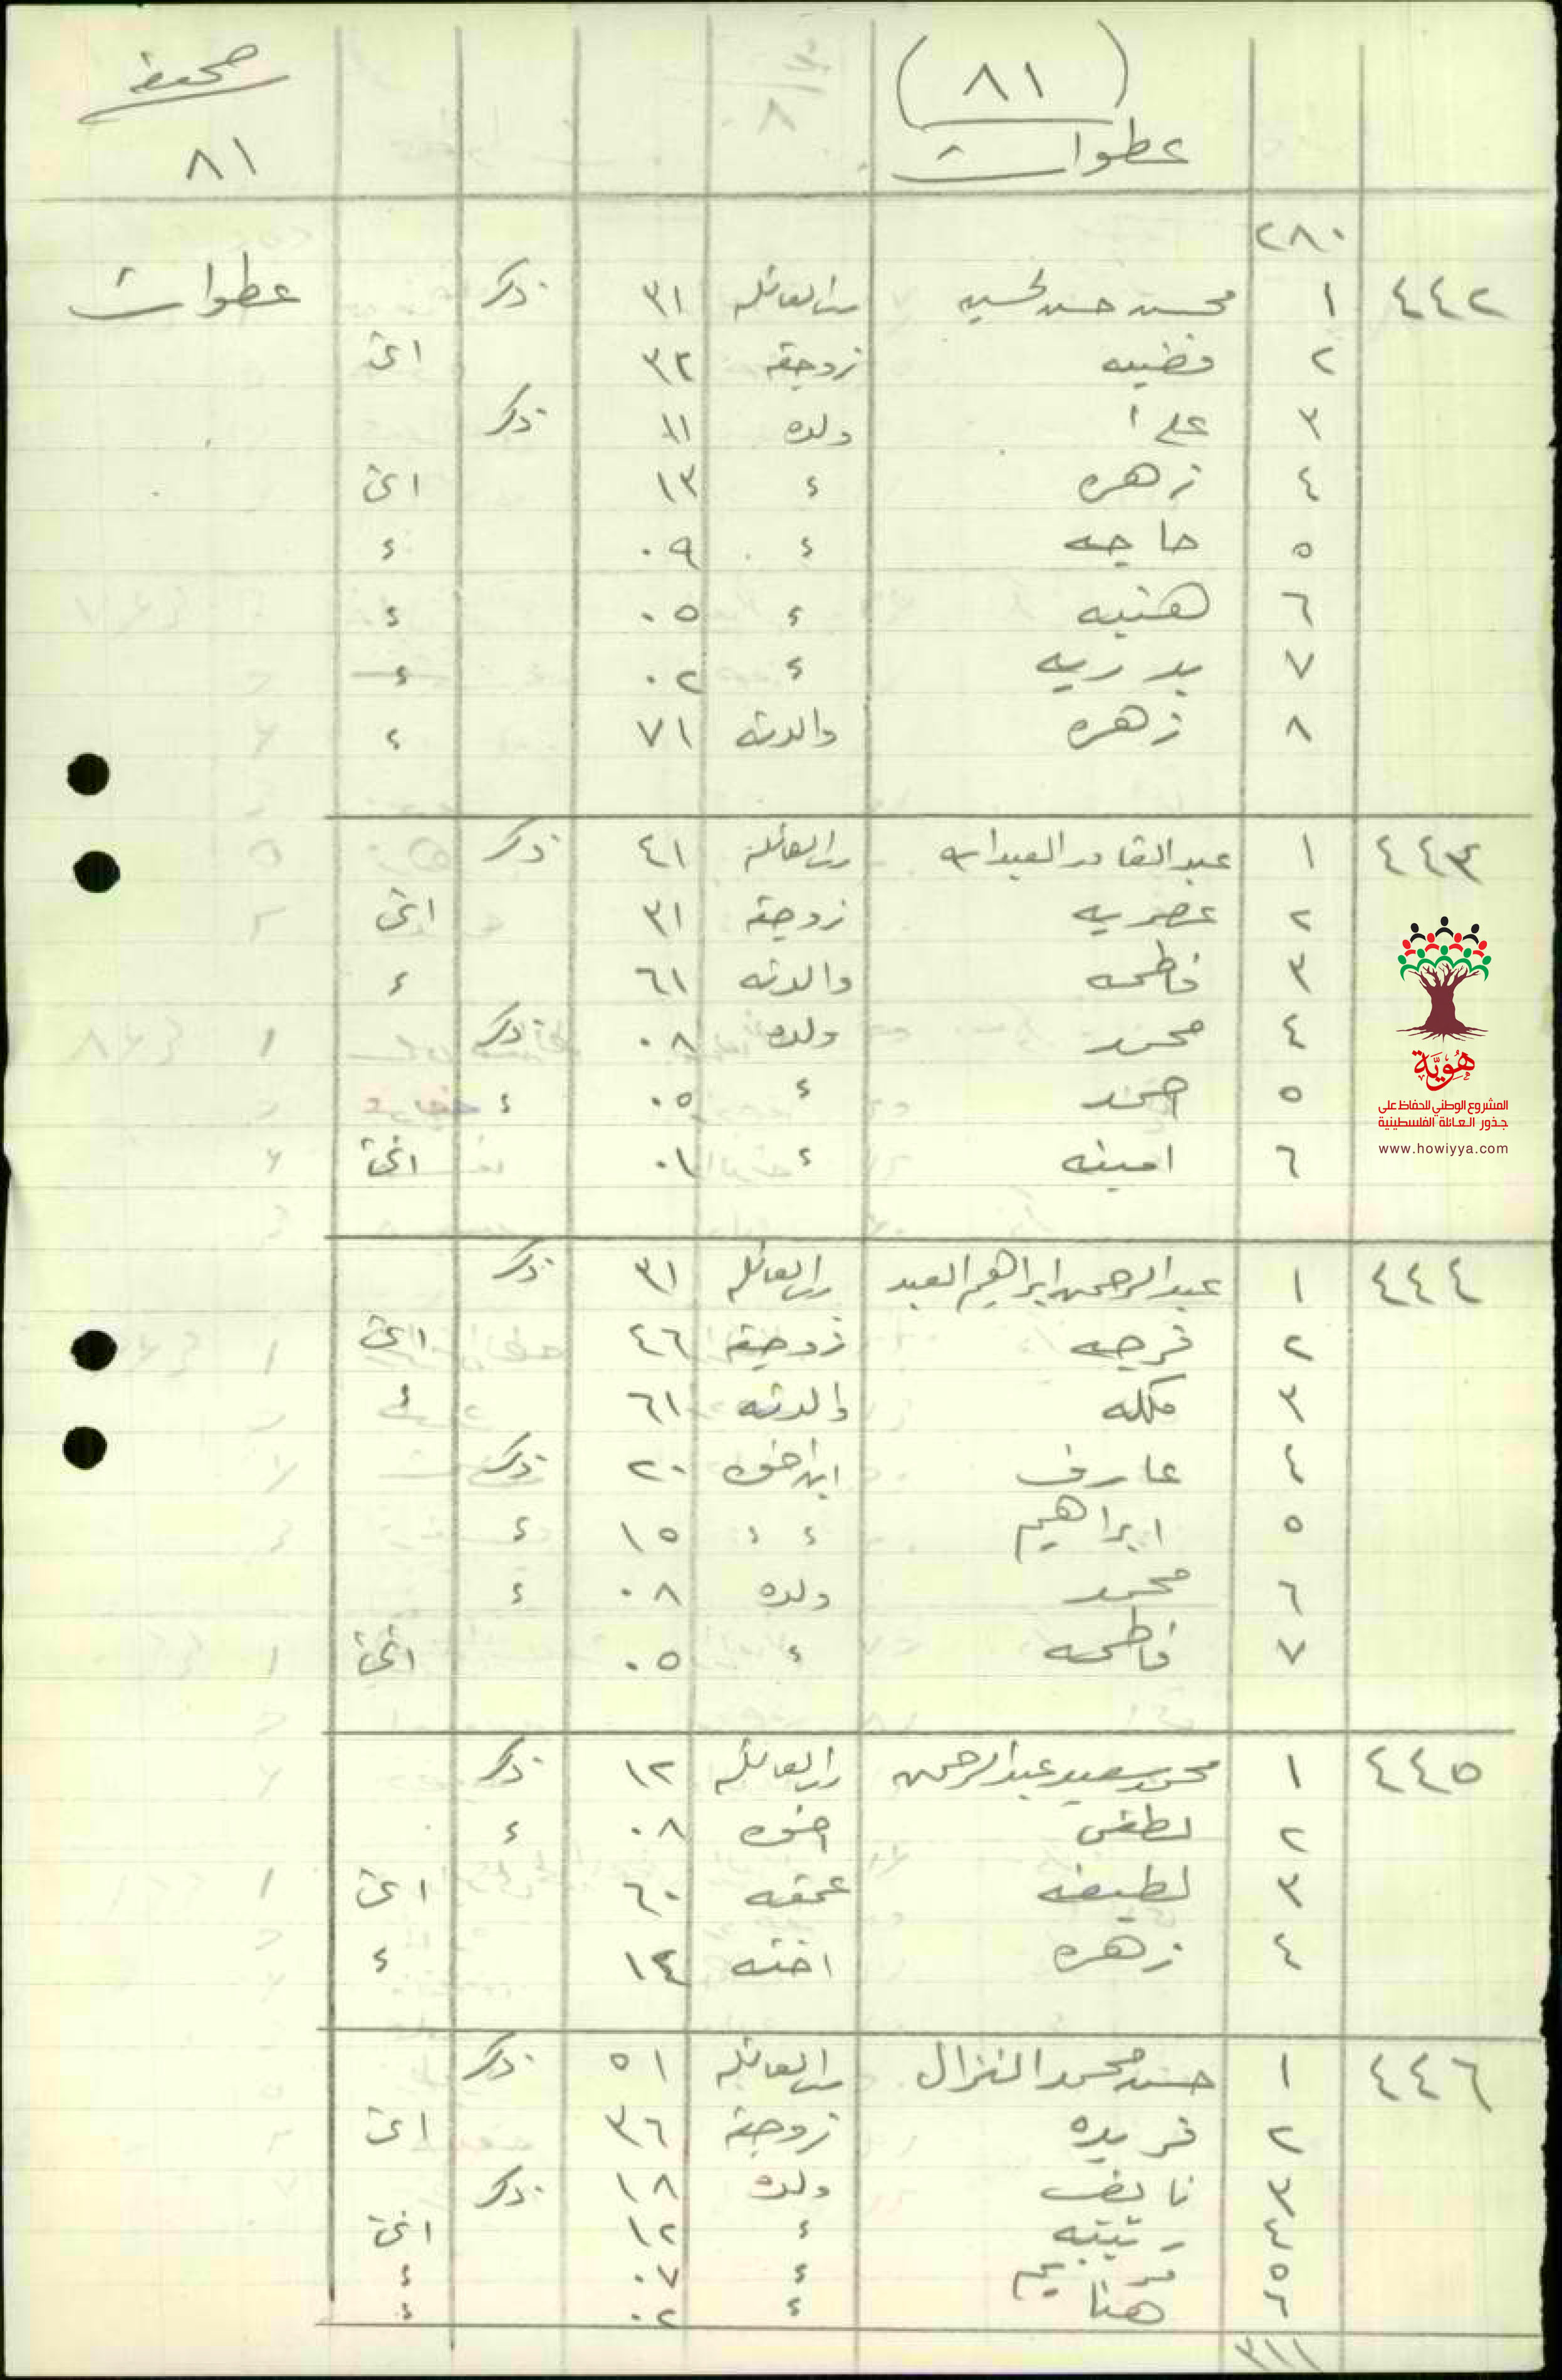 (٨١) صحيفة
عطوات ٨١
٢٨٠
٤٤٢ ١ محمد حسن الحسين رب العائله ٣١ ذكر عطوات
٢ فضيه زوجته ٣٢ انثى
٣ علي ولده ١١ ذكر
٤ زهره ء ١٣ انثى
٥ حاجه ء ٠٩ ء
٦ هنيه ء ٠٥ ء
٧ بدريه ء ٠٢ ء
٨ زهره والدته ٧١ ء
٤٤٣ ١ عبد القادر العبدالله رب العائلة ٤١ ذكر
٢ عصريه زوجته ٣١ انثى
٣ فاطمه والدته ٦١ ء
٤ محمد ولده ٠٨ ذكر
٥ احمد ء ٠٥ ء
٦ امينه ء ٠١ انثى
٤٤٤ ١ عبد الرحمن ابراهيم العبد رب العائله ٣١ ذكر
٢ فرجه زوجته ٤٦ انثى
٣ ملكه والدته ٦١ ء
٤ عارف ابن اخوه ٢٠ ذكر
٥ ابراهيم ء ء ١٥ ء
٦ محمد ولده ٠٨ ء
٧ فاطمه ء ٠٥ انثى
٤٤٥ ١ محمد سعيد عبد الرحمن رب العائله ١٢ ذكر
٢ لطفي اخوه ٠٨ ء
٣ لطيفه عمته ٦٠ انثى
٤ زهره اخته ١٤ ء
٤٤٦ ١ حسن محمد النزال رب العائله ٥١ ذكر
٢ فريده زوجته ٣٦ انثى
٣ نايف ولده ١٨ ذكر
٤ رتيبه ء ١٢ انثى
٥ مريم ء ٠٧ ء
٦ هنا ء ٠٢ ء
٣١١
هُوِيَّة
المشروع الوطني للحفاظ على
جذور العائلة الفلسطينية
www.howiyya.com